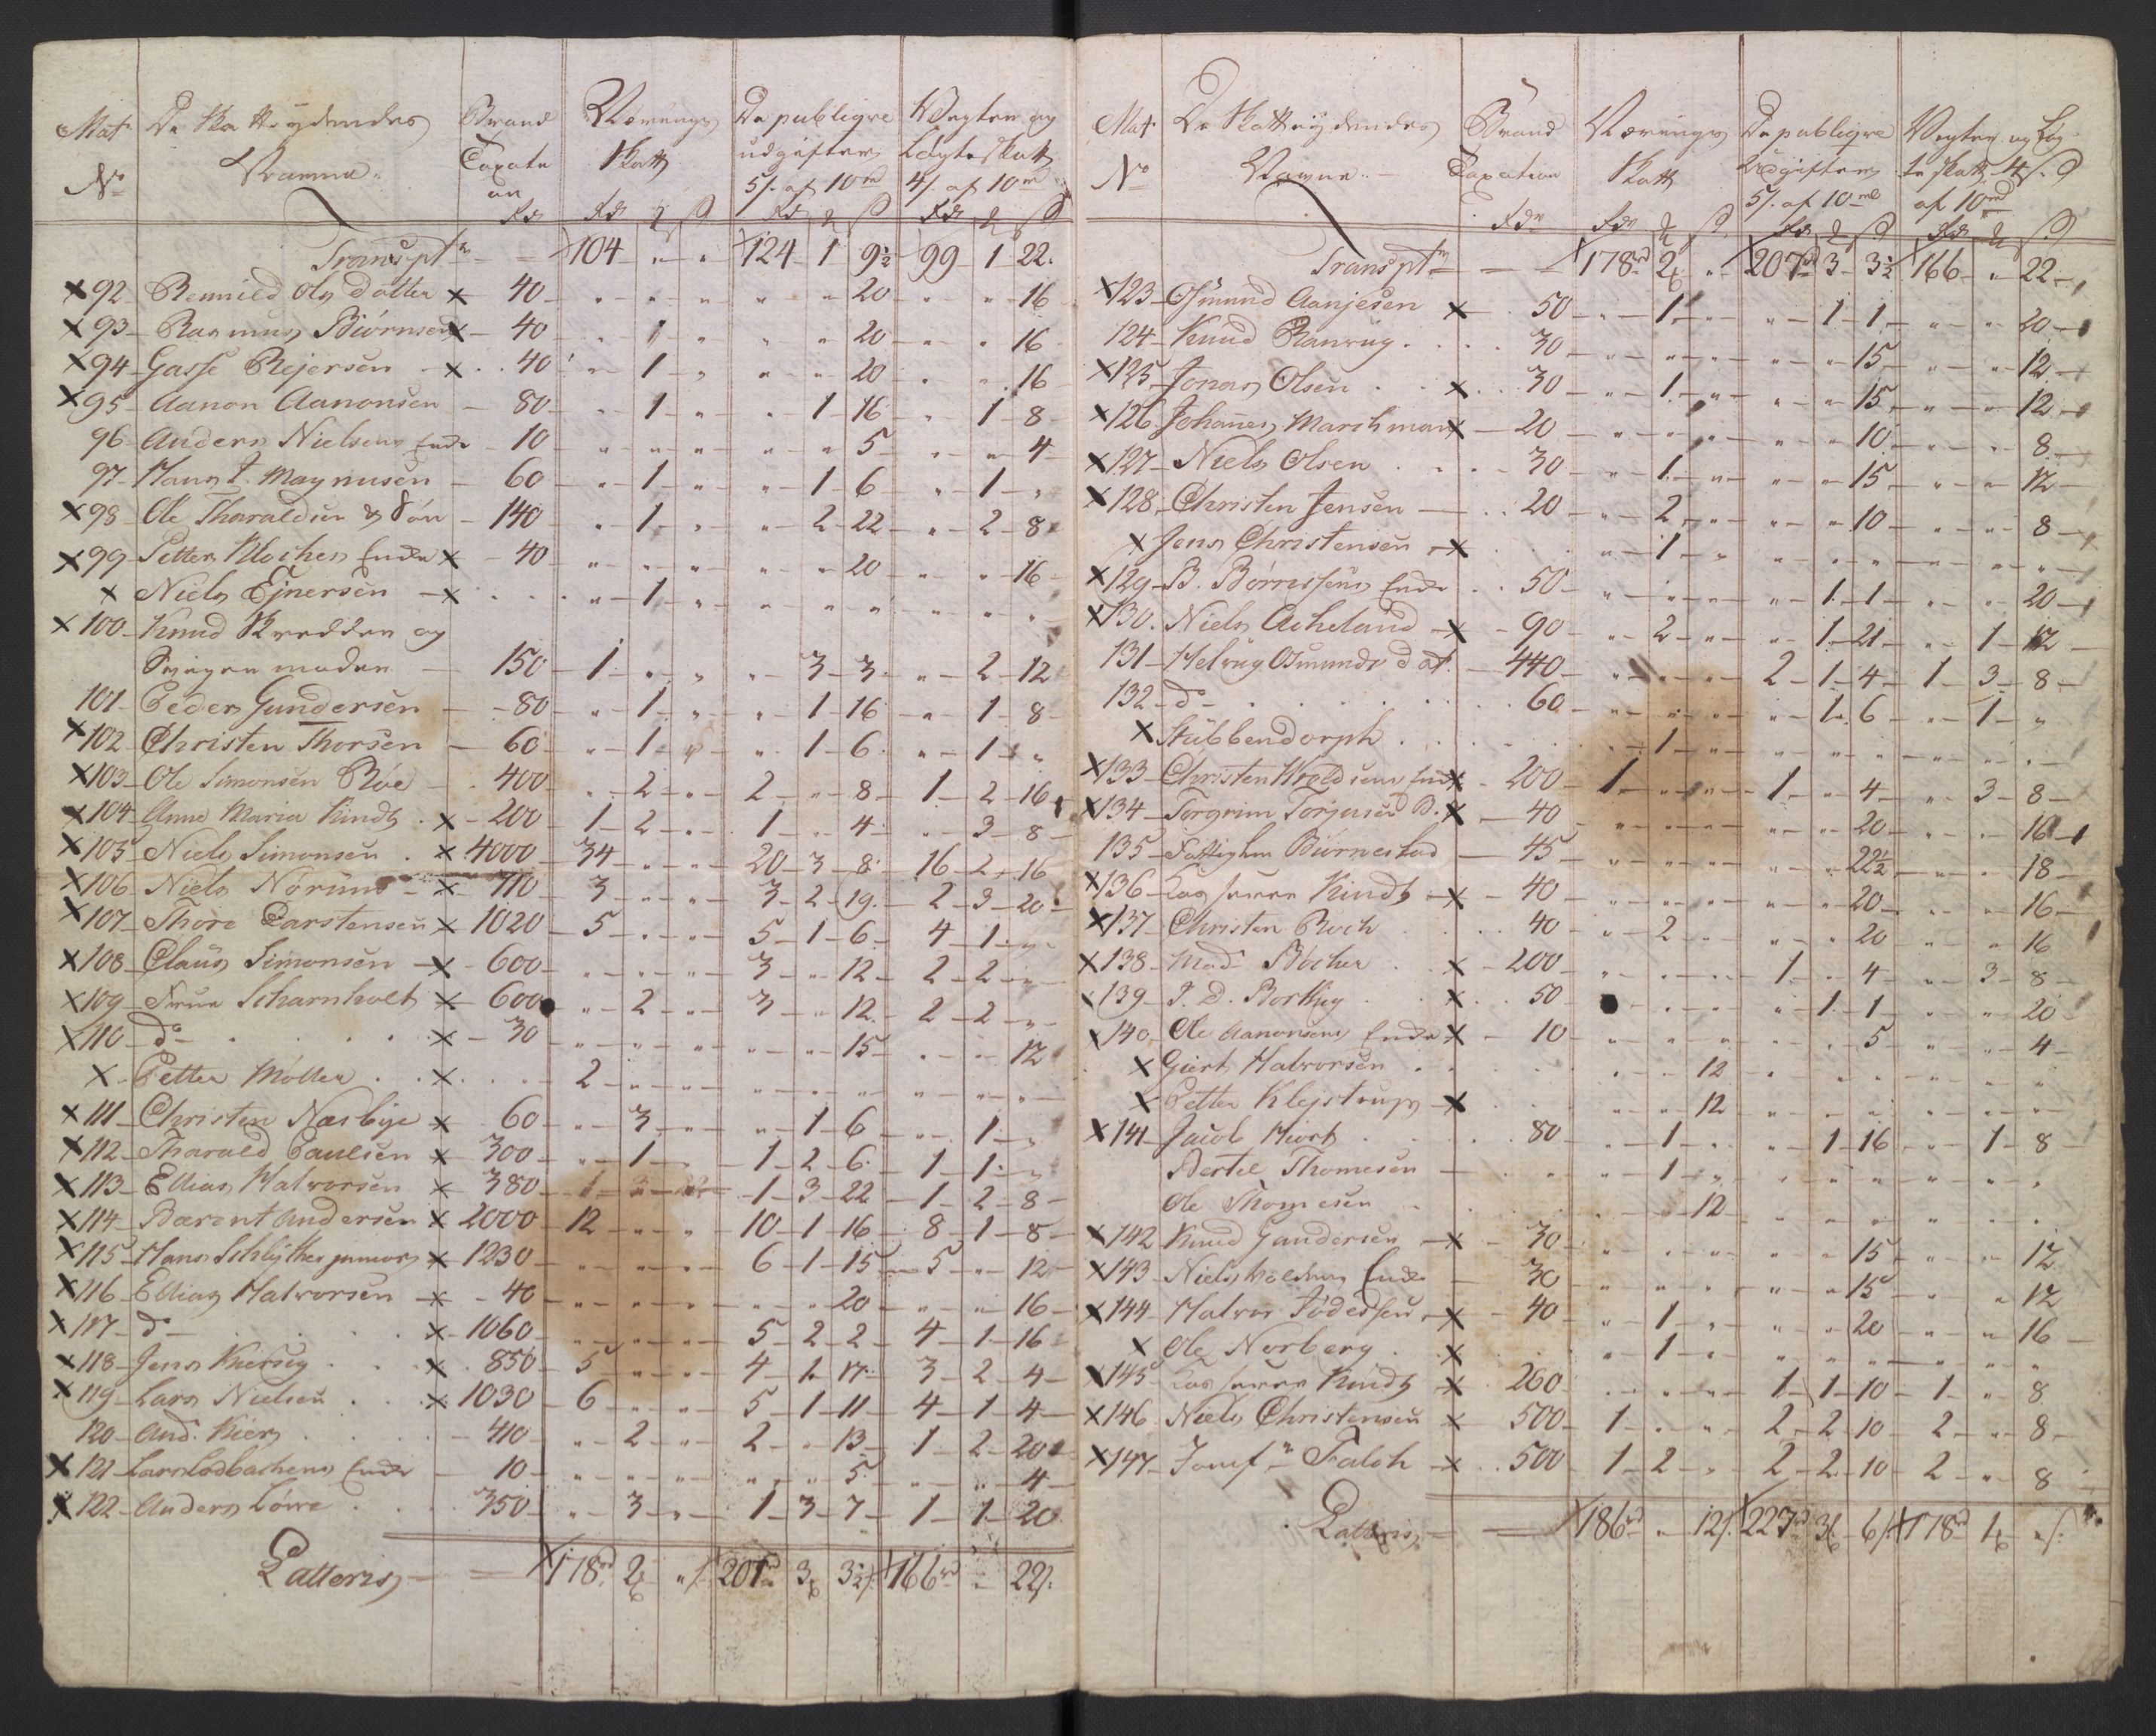 Mat: De Skatteydendes Brand Nærings De publique Vægter og
No Navne. Taxatn Skatt udgifter Lygteskatt
5/. af 10rd 4/. af 10rd
Rdr Rdr ß Rdr ß Rdr ß
Transpt = 104 " " 124 1 9½ 99 1 22.
x 92 Rennild Ols dotter x 40 " " " " " 20 " " 16
x 93 Rasmus Biørnsen x 40 " 1 " " " 20 " " 16
x 94 Gasse Rejersen x 40 " 1 " " " 20 " " 16
x 95 Aanon Aanonsen 80 " 1 " " 1 16 " 1 8
96 Anders Nielsens Enke 10 " " " " " 5 " " 4
97 Hans J. Magnusen 60 " 1 " " 1 6 " 1 "
x 98 Ole Tharaldsen & Søn 140 " 1 " " 2 22 " 2 8
x 99 Petter Klochers Enke x 40 " " " " " 20 " " 16
x Niels Ejnersen x " 1 " " " " " " "
x 100 Knud Skredder og
Svigermoder 150 1 " " " 3 3 " 2 12
101 Peder Gundersen 80 " 1 " " 1 16 " 1 8
x 102 Christen Thorsen 60 " 1 " " 1 6 " 1 "
x 103 Ole Simonsen Röe 400 " 2 " 2 " 8 1 2 16
x 104 Anne Maria Kindt x 200 1 2 " 1 " 4 " 3 8
x 105 Niels Simonsen x 4000 34 " " 20 3 8 16 2 16
x 106 Niels Nöruns x 710 3 " " 3 2 19 2 3 20
x 107 Thore Carstensen x 1020 5 " " 5 1 6 4 1 "
x 108 Claus Simonsen x 600 " " " 3 " 12 2 2 "
x 109 Frue Scharnholt x 600 " 2 " 3 " 12 2 2 "
x 110 do x 30 " " " " " 15 " " 12
x Petter Möller x 2 " " " " " " " "
x 111 Christen Næsbye x 60 " 3 " " 1 6 " 1 "
x 112 Tharald Paulsen x 300 " 1 " 1 2 6 1 1 "
x 113 Ellias Halvorsen x 380 1 3 1 3 22 1 2 8
x 114 Bærent Andersen x 2000 12 " " 10 1 16 8 1 8
x 115 Hans Schlÿtter junior x 1230 " " " 6 1 15 5 " 12
x 116 Ellias Halvorsen x 40 " " " " " 20 " " 16
x 117 do x 1060 " " " 5 2 2 4 1 16
x 118 Jens Kiersig x 850 5 " " 4 1 17 3 2 4
x 119 Lars Nielsen x 1030 6 " " 5 1 11 4 1 4
120 And: Kiers 410 " 2 " 2 " 13 1 2 20
x 121 Lars Enke 10 " " " " " 5 " " 4
x 122 Anders Löwe 350 " 3 " 1 3 7 1 1 20
Latteris = 178rd 2 " 207 3 3½ 166rd " 22ß.
Mat: De Skatteydendes Brand Nærings De publique Vægter og Lyg-
No Navne Taxation Skatt Udgifter te skatt 4 ß
5/. af 10rd af 10rd
Rdr Rdr ß Rdr ß Rdr ß
Transpt = 178rd 2 " 207rd 3 3½ 166 " 22
x 123 Osmund Aanjesen x 50 " 1 " " 1 1 " " 20
124 Knud Ranvug 30 " " " " " 15 " " 12
x 125 Jonas Olsen x 30 " 1 " " " 15 " " 12
x 126 Johanes Marshman x 20 " " " " " 10 " " 8
x 127 Niels Olsen 30 " 1 " " " 15 " " 12
x 128 Christen Jensen 20 " 2 " " " 10 " " 8
x Jens Christensen x " 1 " " " " " " "
x 129 B. Börresens Enke 50 " " " " 1 1 " " 20
x 130 Niels Acheland x 90 " 2 " " 1 21 " 1 12
131 Helvig Osmunds dat. 440 " " " 2 1 4 1 3 8
132 do 60 " " " " 1 6 " 1 "
x Stübbendorph " 1 " " " " " " "
x 133 Christen Woldsens Enke x 200 1 " " 1 " 4 " 3 8
x 134 Torgrim Torjusen B. x 40 " " " " " 20 " " 16
135 Fattighm Biørnestad 45 " " " " " 22½ " " 18
x 136 Kindt x 40 " " " " " 20 " " 16
x 137 Christen Roch 40 " 2 " " " 20 " " 16
x 138 Mad Böcher x 200 " " " 1 " 4 " 3 8
x 139 P. D. Borthig x 50 " " " 1 1 " " 20
x 140 Ole Aanonsens Enke x 10 " " " " " 5 " " 4
x Giert Halvorsen " " 12 " " " " " "
x Petter Klejstrup x " " 12 " " " " " "
x 141 Jacob Hiort 80 " 1 " " 1 16 " 1 8
Bertel Thomesen " 1 " " " " " " "
Ole Thomesen " " 12 " " " " " "
x 142 Knud Gundersen x 30 " " " " " 15 " " 12
x 143 Niels Enke 30 " " " " " 15 " " 12
x 144 Halvor x 40 " 1 " " " 20 " " 16
x Ole Norberg x " 1 " " " " " " "
x 145 Kindt x 260 " " " 1 1 10 1 " 8
x 146 Niels Christensen x 500 1 " " 2 2 10 2 " 8
x 147 Jomfr Falch x 500 1 2 " 2 2 10 2 " 8
Latteris = 186rd " 12ß. 227rd 3 6ß 178rd 1 " ß.